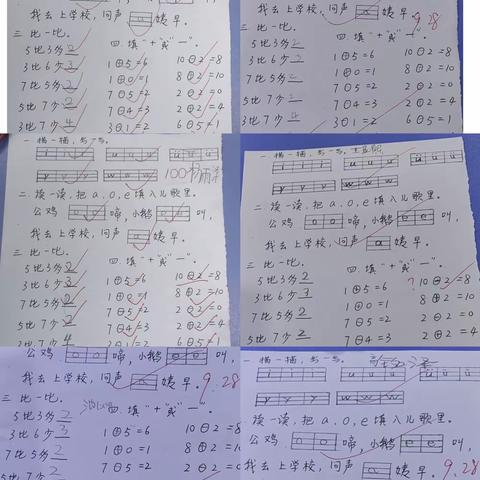 我去上学校,同声 a 姨早。
三 比一比。
四.填"+"或"-"。
5比3多2
1⊕5=6
10⊖2=8
3比6少3
1⊕0=1
8⊕2=10
7比5多2
7⊖5=2
2⊖2=0
5比7少2
7⊖4=3
2⊕2=4
3比7少4
3⊖1=2
6⊖5=1
我去上学校,同声 a 姨早。
9.28
三 比一比。
四.填"+"或"-"。
5比3多2
1⊕5=6
10⊖2=8
3比6少3
1⊕0=1
8⊕2=10
7比5多2
7⊖5=2
2⊖2=0
5比7少2
7⊖4=3
2⊕2=4
3比7少4
3⊙1=2
6⊖5=1
一 描一描,写一写。
i i i i
u u u
ü ü ü
y y y y
w w w
100
二.读一读,把a,o,e填入儿歌里。
公鸡 o o 啼,小鹅 e e 叫,
我去上学校,同声 a 姨早。
三 比一比。
四.填"+"或"-"。
5比3多2
1⊕5=6
10⊖2=8
3比6少3
1⊕0=1
8⊕2=10
7比5多2
7⊖5=2
2⊖2=0
5比7少2
7⊖4=3
2⊕2=4
3比7少4
3⊖1=2
6⊖5=1
一 描一描,写一写。
i i i i
u u u
ü ü ü
y y y y
w w w
二.读一读,把a,o,e填入儿歌里。
公鸡 o o 啼,小鹅 e e 叫,
我去上学校,同声 a 姨早。
三 比一比。
四.填"+"或"-"。
5比3多2
1⊕5=6
10⊖2=8
3比6少3
1⊕0=1
8⊕2=10
7比5多2
7⊖5=2
2⊖2=0
5比7少2
7⊖4=3
2⊕2=4
公鸡 o o 啼,小鹅 e e 叫,
我去上学校,同声 a 姨早。
9.28
三 比一比。
四.填"+"或"-"。
5比3多2
1⊕5=6
10⊖2=8
3比6少3
1⊕0=1
8⊕2=10
7比5多2
7⊖5=2
2⊖2=0
5比7少2
一 描一描,写一写。
i i i i
u u u
ü ü ü
y y y y
w w w
读一读,把a,o,e填入儿歌里。
公鸡 o o 啼,小鹅 e e 叫,
我去上学校,同声 a 姨早。
9.28